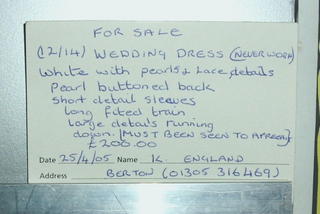 FOR SALE
(12/14) WEDDING DRESS (NEVER WORN)
White with pearls & Lace details
Pearl buttoned back
Short detail sleeves
long fited train
large details running
down. (MUST BEEN SEEN TO
£200.00
Date 25/4/05 Name K. ENGLAND
Address BERTON (01305 316469)